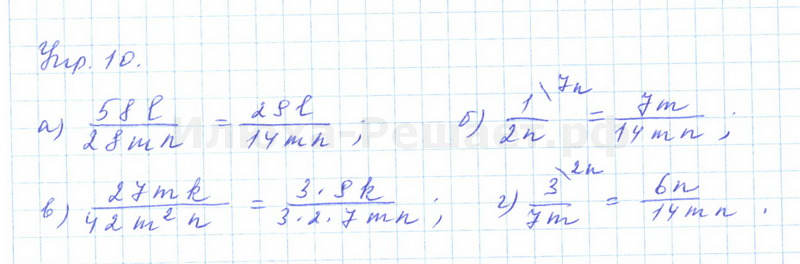 Упр. 10.
а) 58l/28mn = 29l/14mn ; б) 1\7n/2n = 7m/14mn ;
в) 27mk/42m²n = 3·9k/3·2·7mn ; г) 3\2n/7m = 6n/14mn .
Илюха-Решает.рф